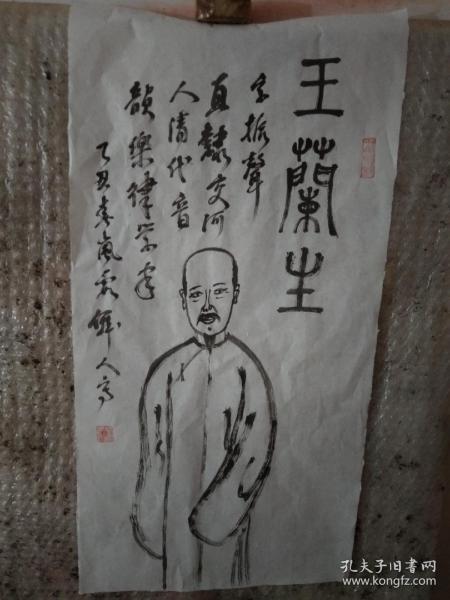 王蘭生
字振聲
直隸交河
人清代音
韻樂律學家
乙丑春嵐霧
人寫
孔夫子旧书网
www.kongfz.com